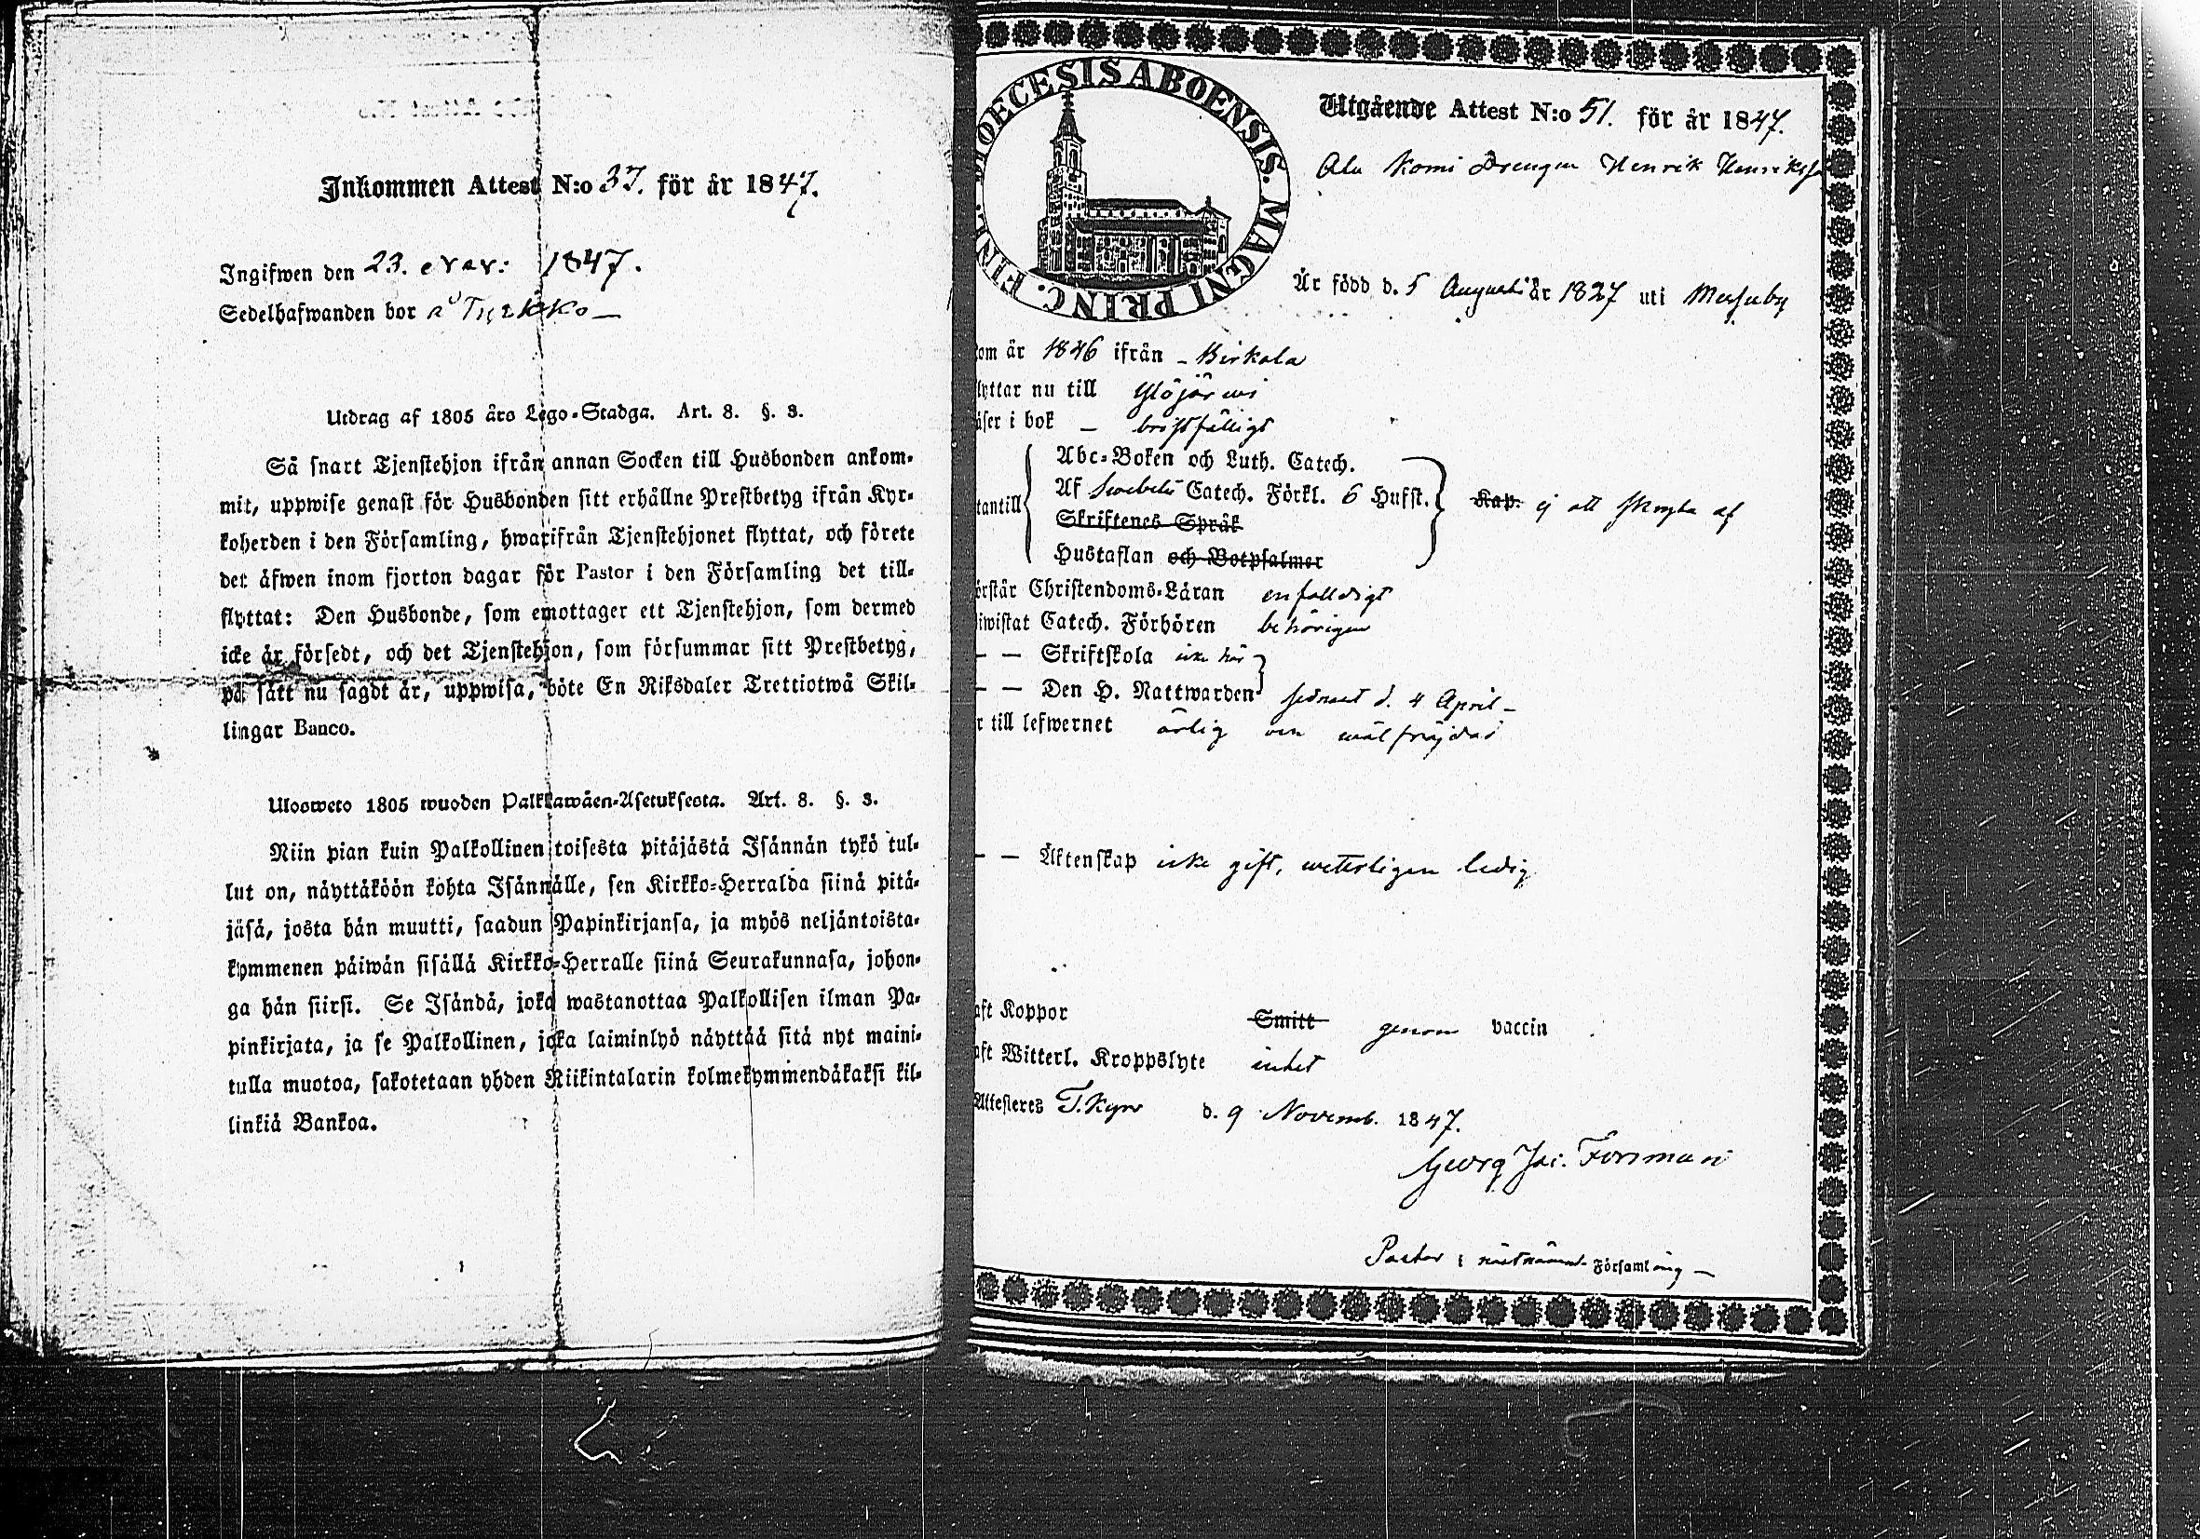 Inkommen Attest N:o 37. för år 1847.
Ingifwen den 23. 1847.
Sedelhafwanden bor å Tyrkkö
Utdrag af 1805 års Lego-Stadga. Art. 8. §. 3.
Så snart Tjenstehjon ifrån annan Socken till Husbonden ankom-
mit, uppwise genast för Husbonden sitt erhållne Prestbetyg ifrån Kyr-
koherden i den Församling, hwarifrån Tjenstehjonet flyttat, och förete
det äfwen inom fjorton dagar för Pastor i den Församling det till-
flyttat: Den Husbonde, som emottager ett Tjenstehjon, som dermed
icke är försedt, och det Tjenstehjon, som försummar sitt Prestbetyg,
på sätt nu sagdt är, uppwisa, böte En Riksdaler Trettiotwå Skil-
lingar Banco.
Ulosweto 1805 wuoden Palkkawäen-Asetuksesta. Art. 8. §. 3.
Niin pian kuin Palkollinen toisesta pitäjästä Isännän tykö tul-
lut on, näyttäköön kohta Isännälle, sen Kirkko-Herralda siinä pitä-
jäsä, josta hän muutti, saadun Papinkirjansa, ja myös neljäntoista-
kymmenen päiwän sisällä Kirkko-Herralle siinä Seurakunnasa, johon-
ga hän siirsi. Se Isändä, joka wastanottaa Palkollisen ilman Pa-
pinkirjata, ja se Palkollinen, joka laiminlyö näyttää sitä nyt maini-
tulla muotoa, sakotetaan yhden Riikintalarin kolmekymmendäkaksi kil-
linkiä Bankoa.
DIOECESIS ABOENSIS. MAGNI PRINC. FINL.
Utgående Attest N:o 51. för år 1847.
Ala Komi Drengen Henrik Henriksson
Är född d. 5 Augusti år 1827 uti
kom år 1846 ifrån Birkala
lyttar nu till Ylöjärwi
äser i bok bristfälligt
Abc-Boken och Luth. Catech.
Af Swebelii Catech. Förkl. 6 Hufst. Kap. ej all
tantill
Skriftenes Språk
Hustaflan och Botpsalmer
örstår Christendoms-Läran enfalldigt
iwistat Catech. Förhören behörigen
— — Skriftskola icke här
— — Den H. Nattwarden senast d. 4 April
r till lefwernet ärlig och wälfräjdad
— — Äktenskap icke gift, witterligen ledig
aft Koppor Smitt genom vaccin
aft Witterl. Kroppslyte intet
Attesteres T.Kyro d. 9 Novemb. 1847.
Georg Jac. Forsman
Pastor i nästnämnd Församling